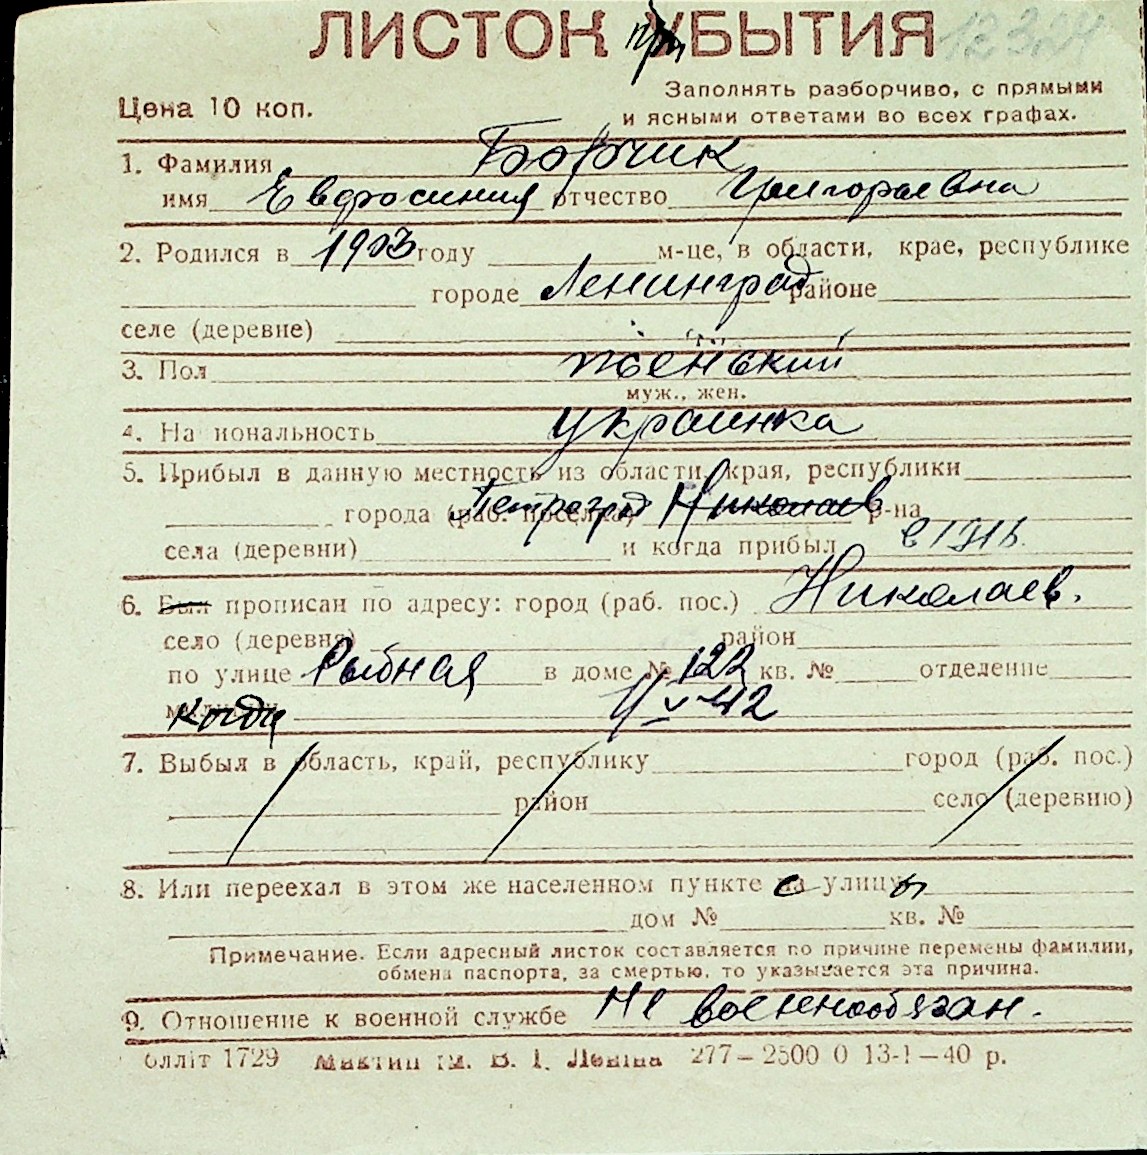 ЛИСТОК при БЫТИЯ 12324
Цена 10 коп.
Заполнять разборчиво, с прямыми
и ясными ответами во всех графах.
1. Фамилия Борчик
имя Евфросиния отчество Григорьевна
2. Родился в 1903 году м-це, в области, крае, республике
городе Ленинград районе
селе (деревне)
3. Пол женский
муж., жен.
4. На иональность Украинка
5. Прибыл в данную местность из области, края, республики
города (раб. поселка) Петроград Николаев р-на
села (деревни) и когда прибыл в
6. Был прописан по адресу: город (раб. пос.) Николаев.
село (деревня) район
по улице Рыбная в доме № 122 кв. № отделение
когда V-42
7. Выбыл в область, край, республику город (раб. пос.)
район село (деревню)
8. Или переехал в этом же населенном пункте с улицы
дом № кв. №
Примечание. Если адресный листок составляется по причине перемены фамилии,
обмена паспорта, за смертью, то указывается эта причина.
9. Отношение к военной службе не военнообязан.
блліт 1729 В. І. Леніна 277–2500 0 13-1–40 р.